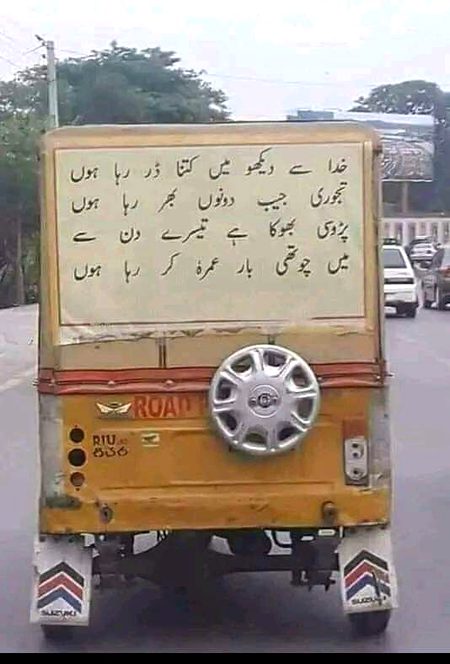 خدا سے دیکھو میں کتنا ڈر رہا ہوں
تجوری جیب دونوں بھر رہا ہوں
پڑوسی بھوکا ہے تیسرے دن سے
میں چوتھی بار عمرہ کر رہا ہوں
ROAD
RIU
836
SUZUKI
SUZUKI